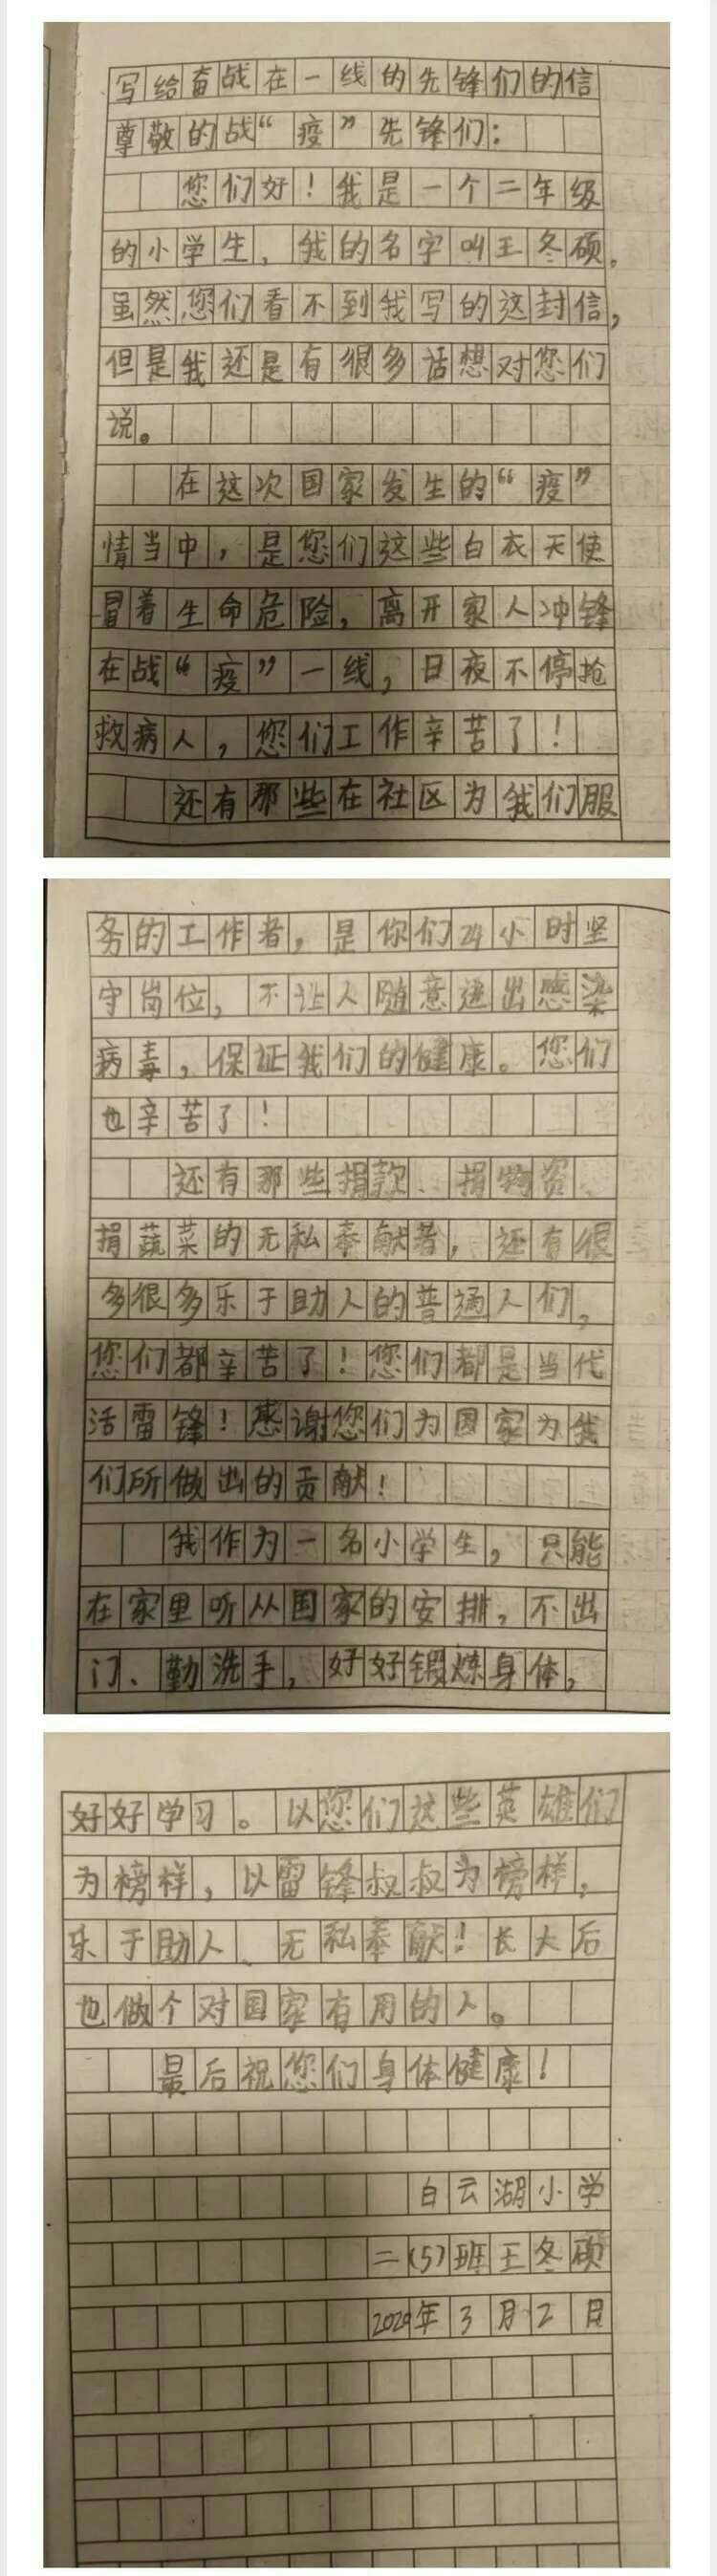 写给奋战在一线的先锋们的信
尊敬的战“疫”先锋们：
您们好！我是一个二年级
的小学生，我的名字叫王冬硕。
虽然您们看不到我写的这封信，
但是我还是有很多话想对您们
说。
在这次国家发生的“疫”
情当中，是您们这些白衣天使
冒着生命危险，离开家人冲锋
在战“疫”一线，日夜不停抢
救病人，您们工作辛苦了！
还有那些在社区为我们服
务的工作者，是你们24小时坚
守岗位，不让人随意进出感染
病毒，保证我们的健康。您们
也辛苦了！
还有那些捐款、捐物资、
捐蔬菜的无私奉献者，还有很
多很多乐于助人的普通人们，
您们都辛苦了！您们都是当代
活雷锋！感谢您们为国家为我
们所做出的贡献！
我作为一名小学生，只能
在家里听从国家的安排，不出
门、勤洗手，好好锻炼身体，
好好学习。以您们这些英雄们
为榜样，以雷锋叔叔为榜样，
乐于助人、无私奉献！长大后
也做个对国家有用的人。
最后祝您们身体健康！
白云湖小学
二(5)班王冬硕
2020年3月2日